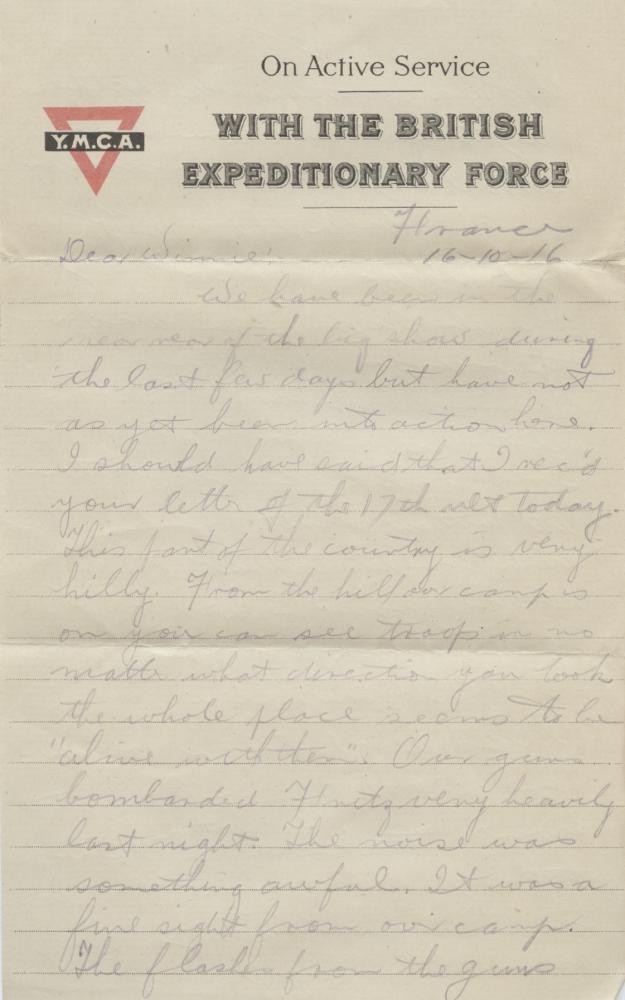 On Active Service
Y.M.C.A.
WITH THE BRITISH
EXPEDITIONARY FORCE
France
Dear Winnie: 16-10-16
We have been in the
near rear of the big show during
the last few days but have not
as yet been into action here.
I should have said that I rec'd
your letter of the 17th ult today.
This part of the country is very
hilly. From the hill our camp is
on you can see troops in no
matter what direction you look
the whole place seems to be
"alive with them". Our guns
bombarded Fritz very heavily
last night. The noise was
something awful. It was a
fine sight from our camp.
The flashes from the guns